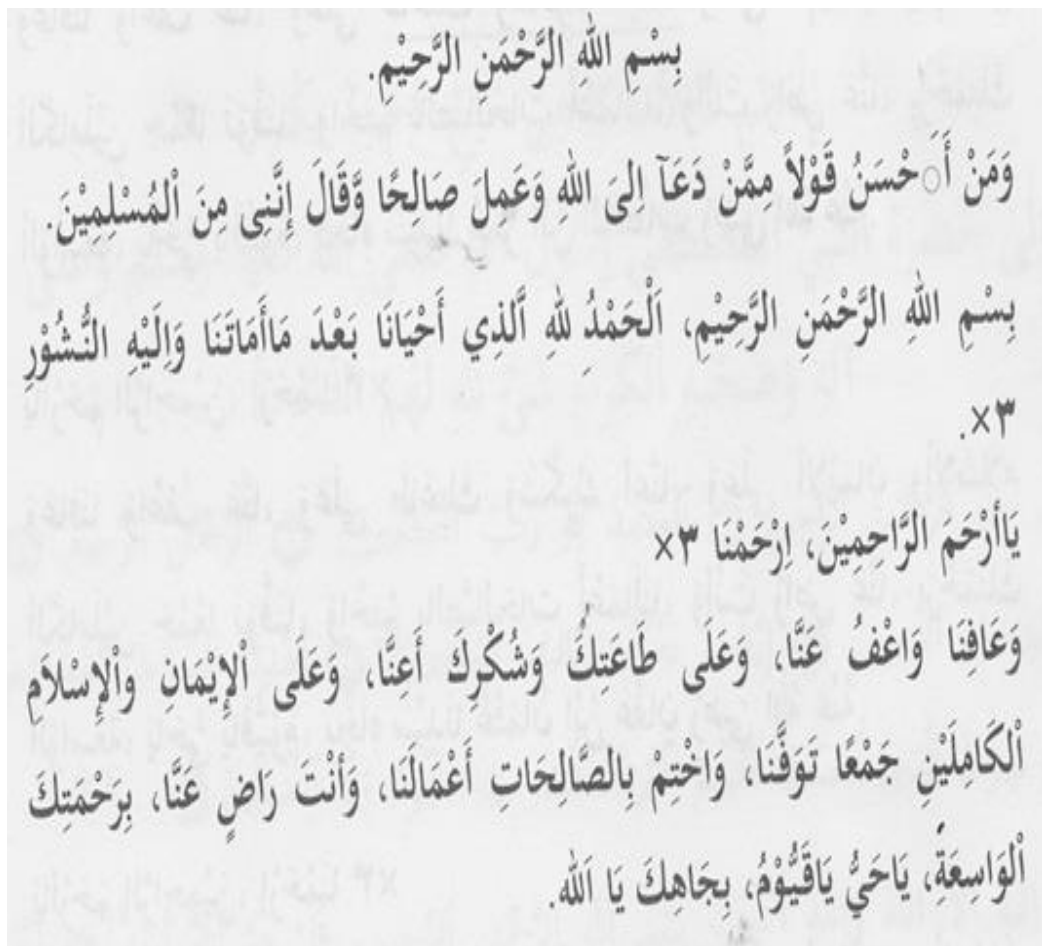 بِسْمِ اللهِ الرَّحْمَنِ الرَّحِيْمِ.
وَمَنْ أَحْسَنُ قَوْلاً مِمَّنْ دَعَآ اِلىَ اللهِ وَعَمِلَ صَالِحًا وَّقَالَ إِنَّنِى مِنَ اْلمُسْلِمِيْنَ.
بِسْمِ اللهِ الرَّحْمَنِ الرَّحِيْمِ، اَلْحَمْدُ ِللهِ الَّذِي أَحْيَانَا بَعْدَ مَاأَمَاتَنَا وَاِلَيْهِ النُّشُوْرِ
٣×.
يَاأَرْحَمَ الرَّاحِمِيْنَ، اِرْحَمْنَا ٣×
وَعَافِنَا وَاعْفُ عَنَّا، وَعَلَى طَاعَتِكَ وَشُكْرِكَ أَعِنَّا، وَعَلَى اْلإِيْمَانِ واْلإِسْلاَمِ
اْلكَامِلَيْنِ جَمْعًا تَوَفَّنَا، وَاخْتِمْ بِالصَّالِحَاتِ أَعْمَالَنَا، وَأَنْتَ رَاضٍ عَنَّا، بِرَحْمَتِكَ
اْلوَاسِعَةِ، يَاحَيُّ يَاقَيُّوْمُ، بِجَاهِكَ يَا اَلله.